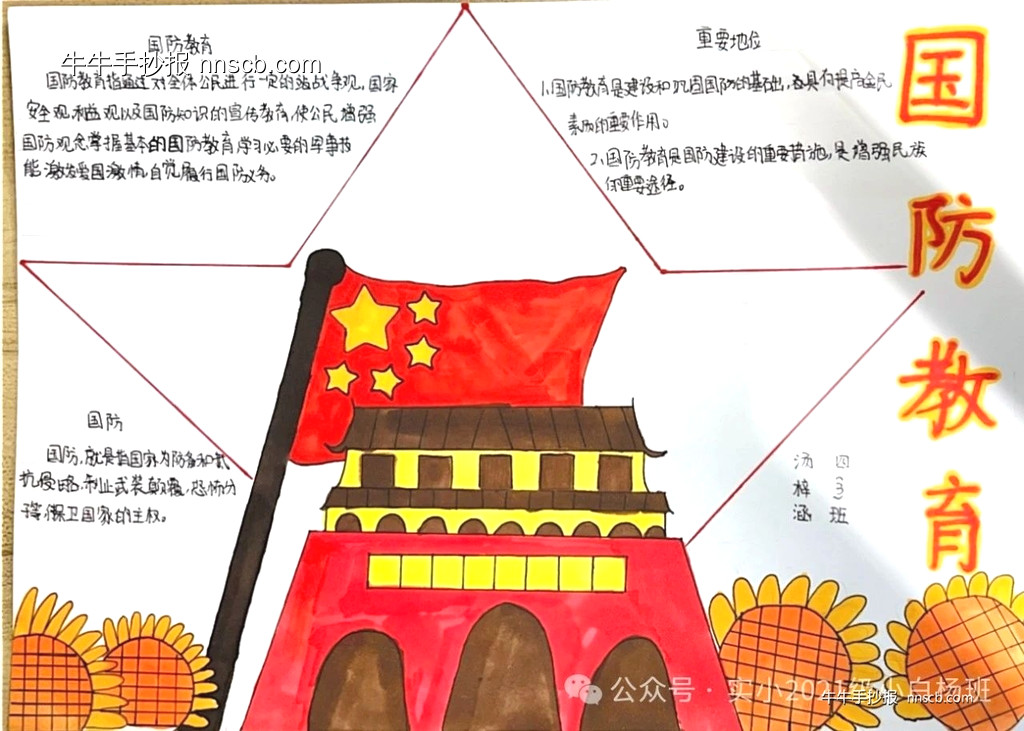 国防教育
牛牛手抄报 nnscb.com
国防教育指通过对全体公民进行一定的站战争观,国家
安全观,利益观以及国防知识的宣传教育,使公民增强
国防观念掌握基本的国防教育,学习必要的军事技
能,激发爱国激情,自觉履行国防义务。
重要地位
1.国防教育是建设和巩固国防的基础出,是具有提高全民
素质的重要作用。
2.国防教育是国防建设的重要措施,是增强民族
的重要途径。
国防教育
国防
国防,就是指国家为防备和武
抗侵略,制止武装颠覆,恐怖分
子等,保卫国家的主权。
汤梓涵
四3班
公众号·实小2021级小白杨班
牛牛手抄报 nnscb.com